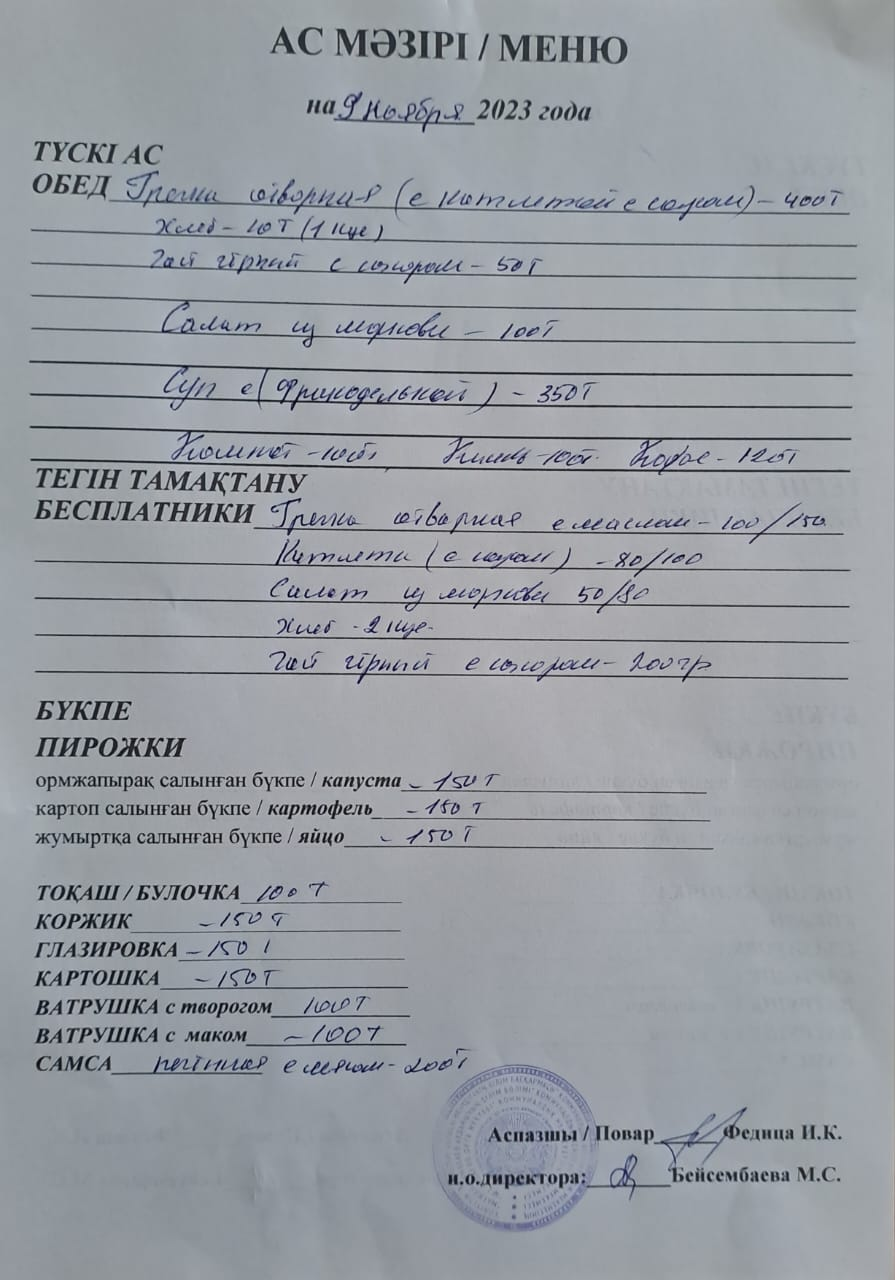 АС МӘЗІРІ / МЕНЮ
на 9 ноября 2023 года
ТҮСКІ АС
ОБЕД Гречка отворная (с котлетой с соусом) – 400т
Хлеб – 10т (1 кус)
Чай чёрный с сахаром – 50т
Салат из моркови – 100т
Суп с (фрикаделькой) – 350т
Компот – 100т, Кисель – 100т. Кофе – 120т
ТЕГІН ТАМАҚТАНУ
БЕСПЛАТНИКИ Гречка отворная с маслом – 100/150
Котлета (с соусом) – 80/100
Салат из моркови 50/80
Хлеб - 2 кус.
Чай чёрный с сахаром – 200гр
БҮКПЕ
ПИРОЖКИ
ормжапырақ салынған бүкпе / капуста – 150т
картоп салынған бүкпе / картофель – 150т
жумыртқа салынған бүкпе / яйцо – 150т
ТОҚАШ / БУЛОЧКА 100т
КОРЖИК – 150т
ГЛАЗИРОВКА – 150т
КАРТОШКА – 150т
ВАТРУШКА с творогом 100т
ВАТРУШКА с маком – 100т
САМСА с мясом – 200т
Аспазшы / Повар Федица И.К.
и.о.директора: Бейсембаева М.С.